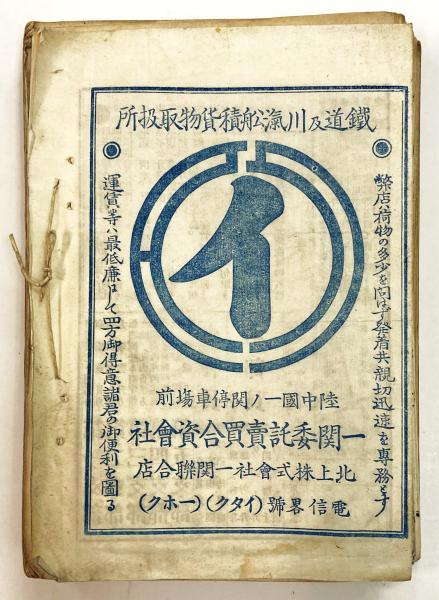 所扱取物貨積舩滊川及道鐵
弊店ハ荷物の多少を問はず発着共親切迅速を専務とす
イ
運賃等ハ最低廉にして四方御得意諸君の御便利を圖る
前場車停関ノ一國中陸
社會資合買賣託委関一
店合聯関一社會式株上北
(クホ一)(クタイ)號畧信電